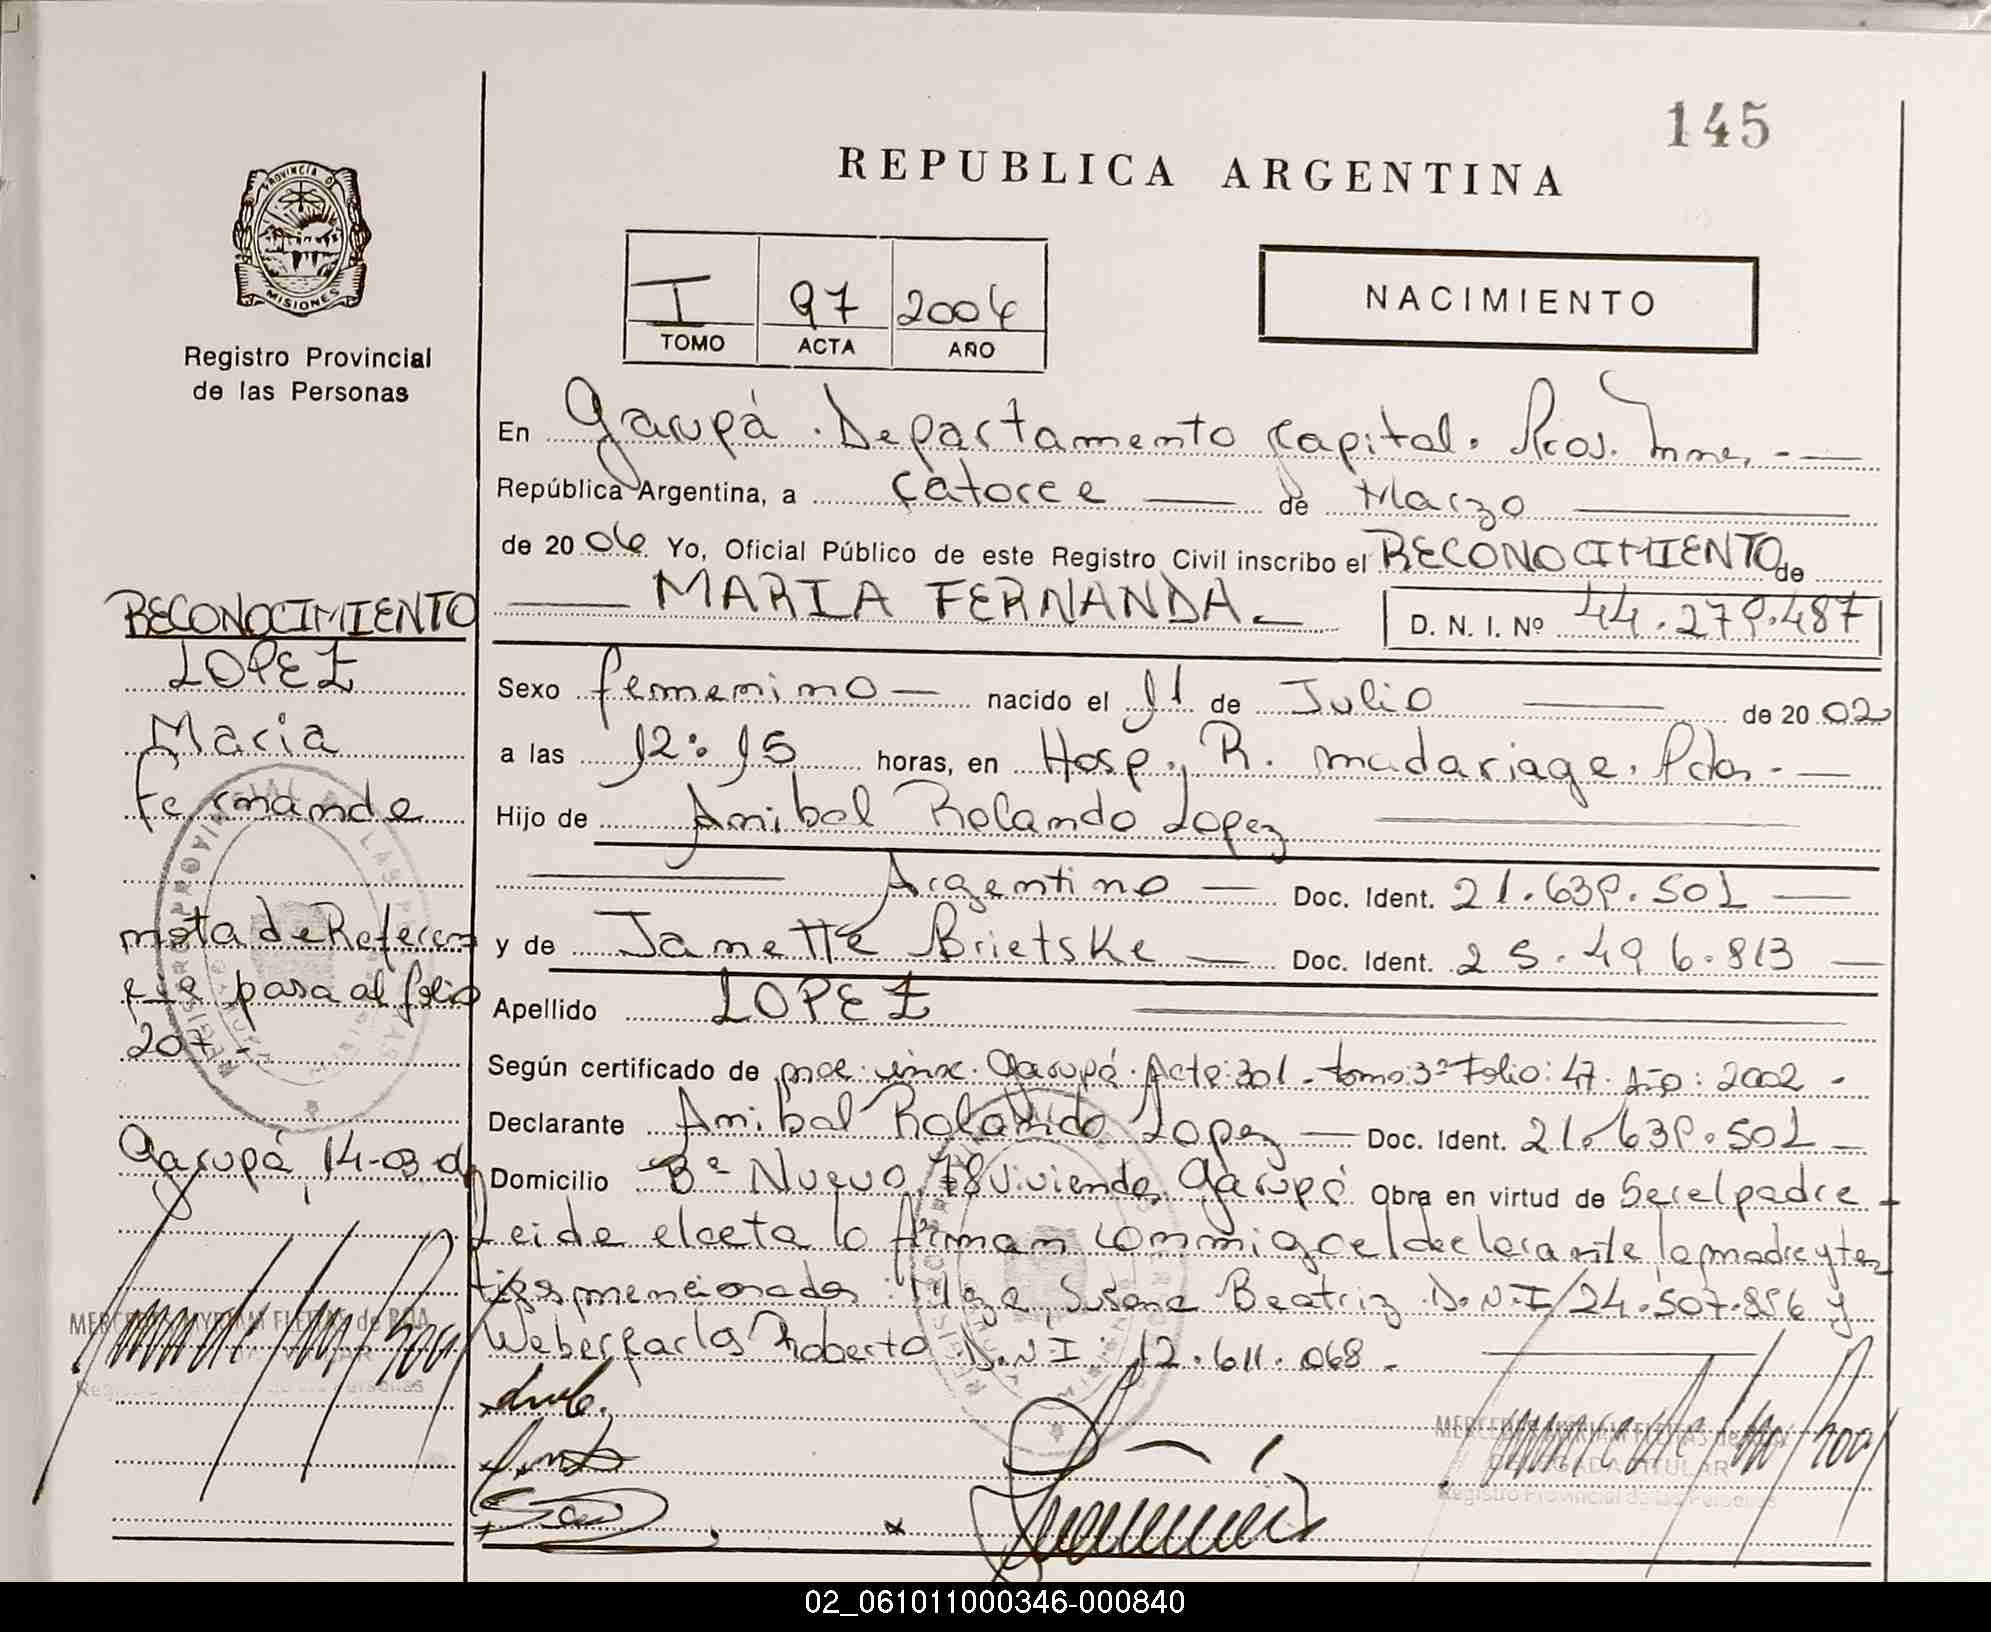 145
REPUBLICA ARGENTINA
PROVINCIA DE
MISIONES
Registro Provincial
de las Personas
I 97 2006
TOMO ACTA AÑO
NACIMIENTO
En Garupá. Departamento Capital. Pcos. Mnes, -
República Argentina, a catorce de Marzo
de 2006 Yo, Oficial Público de este Registro Civil inscribo el RECONOCIMIENTO de
MARIA FERNANDA D. N. I. Nº 44.279.487
Sexo femenino nacido el 11 de Julio de 2002
a las 12:15 horas, en Hosp. R. madariaga. Pdas.
Hijo de Anibal Rolando Lopez
Argentino Doc. Ident. 21.639.501
y de Janette Brietske Doc. Ident. 25.496.813
Apellido LOPEZ
Según certificado de inx. Garupá. Acta: 301. tomo 3º Folio: 47. Año: 2002.
Declarante Anibal Rolando Lopez Doc. Ident. 21.639.501
Domicilio Bº Nuevo 78 viviendas Garupá Obra en virtud de Ser el padre
Leida el acta lo firman conmigo el declarante la madre y tes
tigos mencionados: Susana Beatriz D.N.I 24.507.856 y
Weber Carlos Roberto D.N.I: 12.611.068.
RECONOCIMIENTO
LOPEZ
Maria
Fernanda
nota de Referen
cia pasa al folio
207.-
Garupá, 14-03-06
MERCEDES MYRIAM FLEITAS de ROA
Registro Provincial de las Personas
MERCEDES MYRIAM FLEITAS de ROA
DELEGADA TITULAR
Registro Provincial de las Personas
02_061011000346-000840